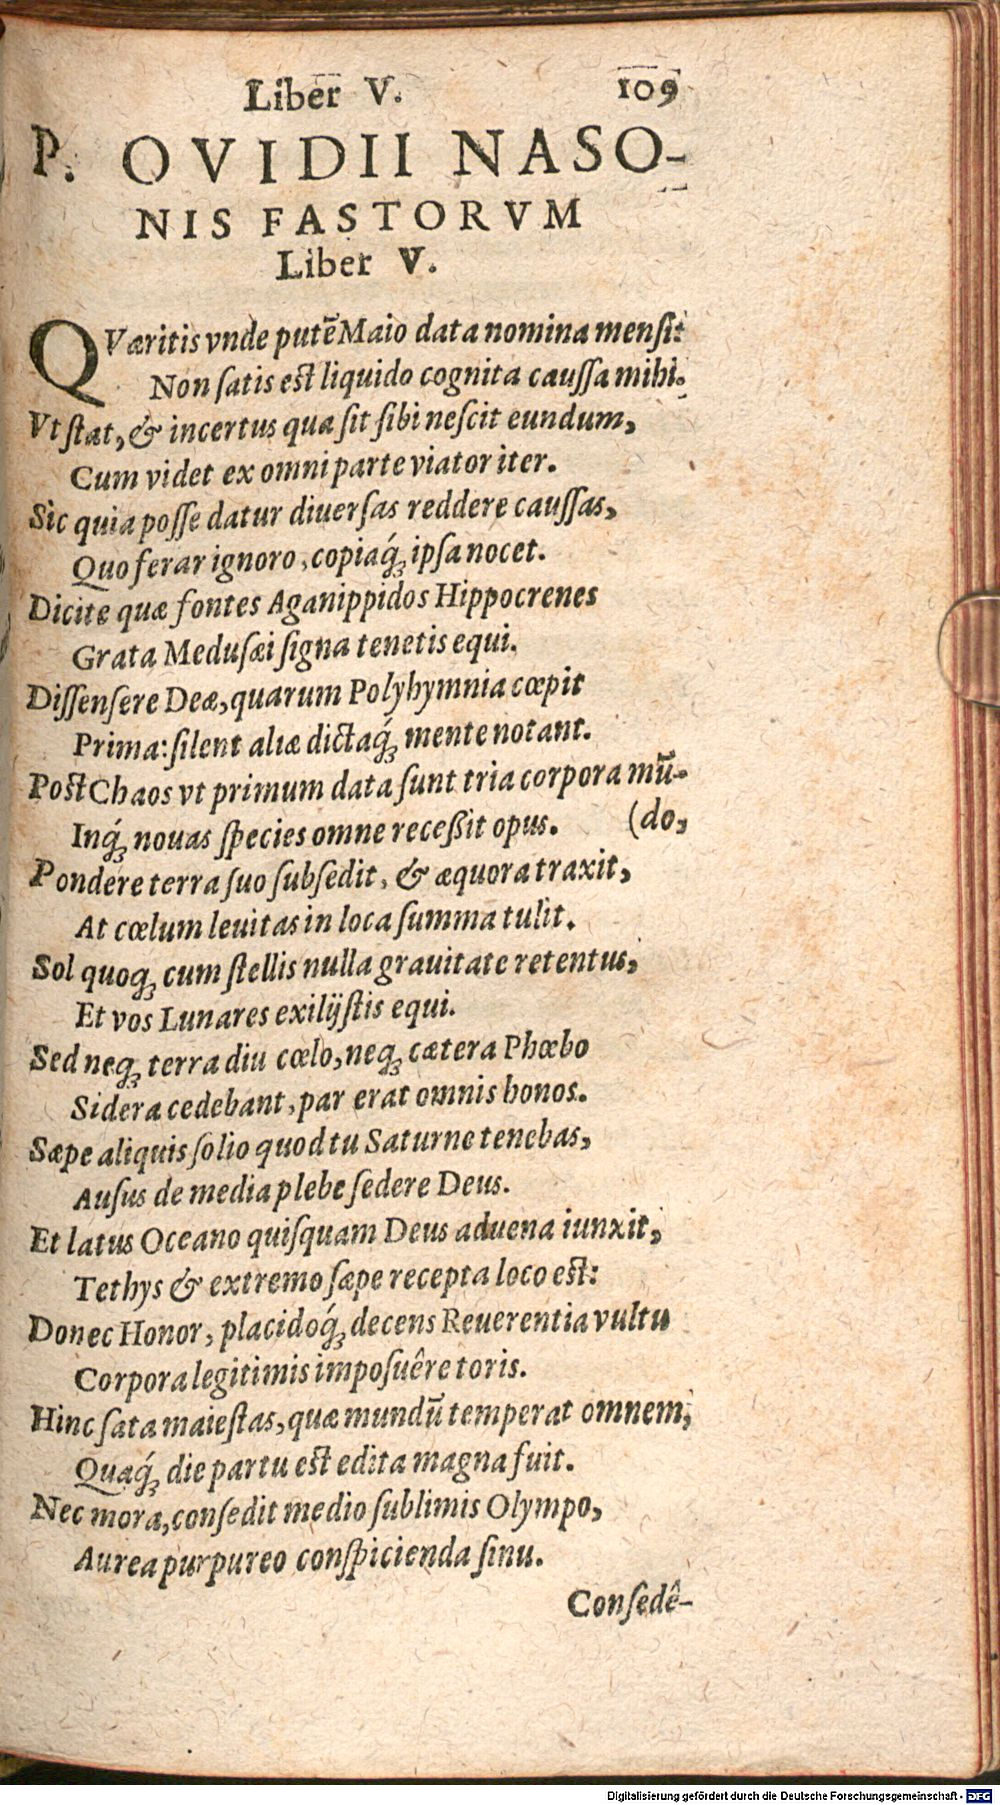 Liber V. 109
P. OVIDII NASO-
NIS FASTORVM
Liber V.
QVæritis vnde putē Maio data nomina mensi?
Non ſatis eſt liquido cognita cauſſa mihi.
Vt ſtat, & incertus qua ſit ſibi neſcit eundum,
Cum videt ex omni parte viator iter.
Sic quia poſſe datur diuerſas reddere cauſſas,
Quo ferar ignoro, copiaq́; ipſa nocet.
Dicite quæ fontes Aganippidos Hippocrenes
Grata Meduſæi ſigna tenetis equi.
Diſſenſere Deæ, quarum Polyhymnia cœpit
Prima: ſilent aliæ dictaq́; mente notant.
Poſt Chaos vt primum data ſunt tria corpora mū-
Inq́; nouas ſpecies omne receßit opus. (do,
Pondere terra ſuo ſubſedit, & æquora traxit,
At cœlum leuitas in loca ſumma tulit.
Sol quoq; cum ſtellis nulla grauitate retentus,
Et vos Lunares exilijſtis equi.
Sed neq; terra diu cœlo, neq; cætera Phœbo
Sidera cedebant, par erat omnis honos.
Sæpe aliquis ſolio quod tu Saturne tenebas,
Auſus de media plebe ſedere Deus.
Et latus Oceano quiſquam Deus aduena iunxit,
Tethys & extremo ſæpe recepta loco eſt:
Donec Honor, placidoq́; decens Reuerentia vultu
Corpora legitimis impoſuêre toris.
Hinc ſata maieſtas, quæ mundū temperat omnem,
Quaq́; die partu eſt edita magna fuit.
Nec mora, conſedit medio ſublimis Olympo,
Aurea purpureo conſpicienda ſinu.
Conſedê-
Digitalisierung gefördert durch die Deutsche Forschungsgemeinschaft - DFG